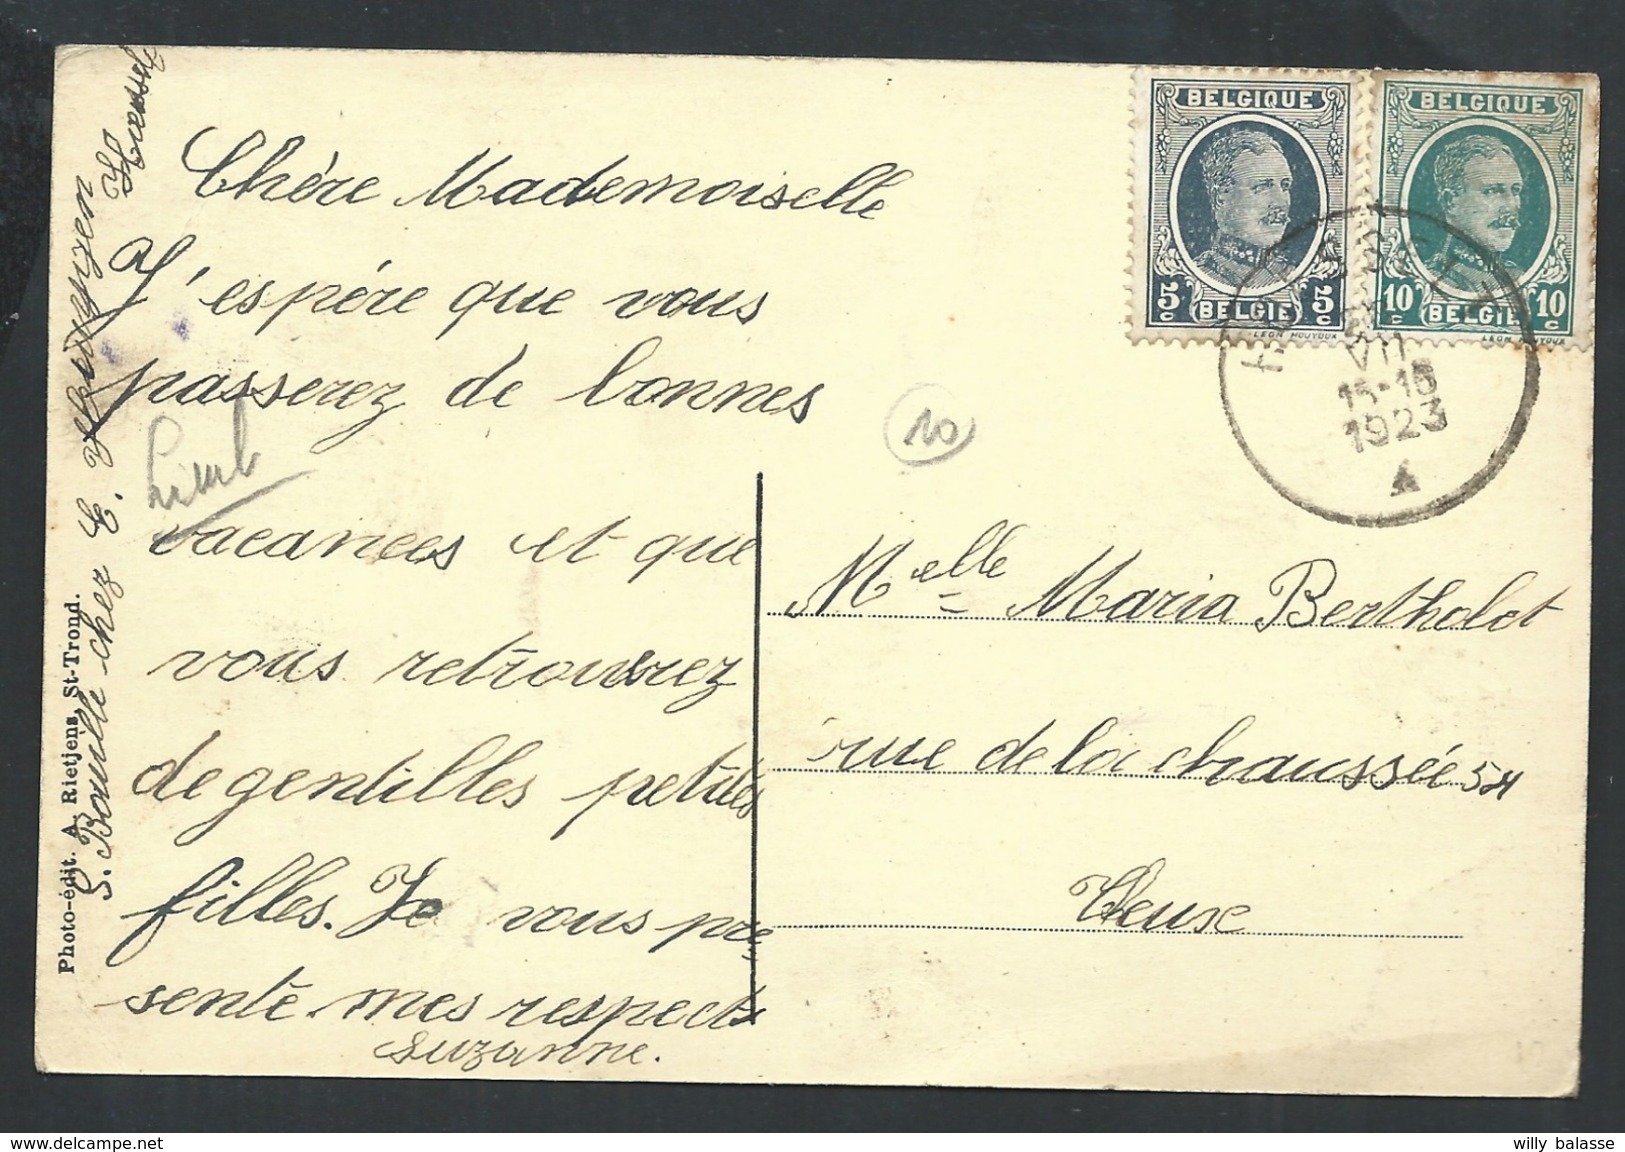 Chère Mademoiselle
J'espére que vous
passerez de bonnes
vacances et que
vous retrouverez
de gentilles petites
filles. Je vous pré
sente mes respects
Suzanne.
S. Bouille chez E.
Hoesselt
Limb
Photo-édit. A. Rietjens, St-Trond.
10
BELGIQUE
5c BELGIE 5c
LEON HOUYOUX
BELGIQUE
10c BELGIE 10c
LEON HOUYOUX
VII
15-16
1923
A
Melle Maria Bertholet
rue de la chaussée 54
Heuse
willy balasse